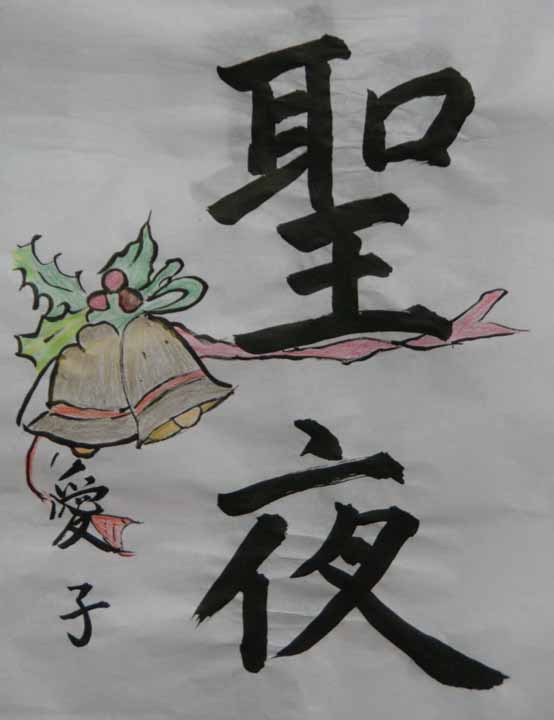 聖夜
愛子